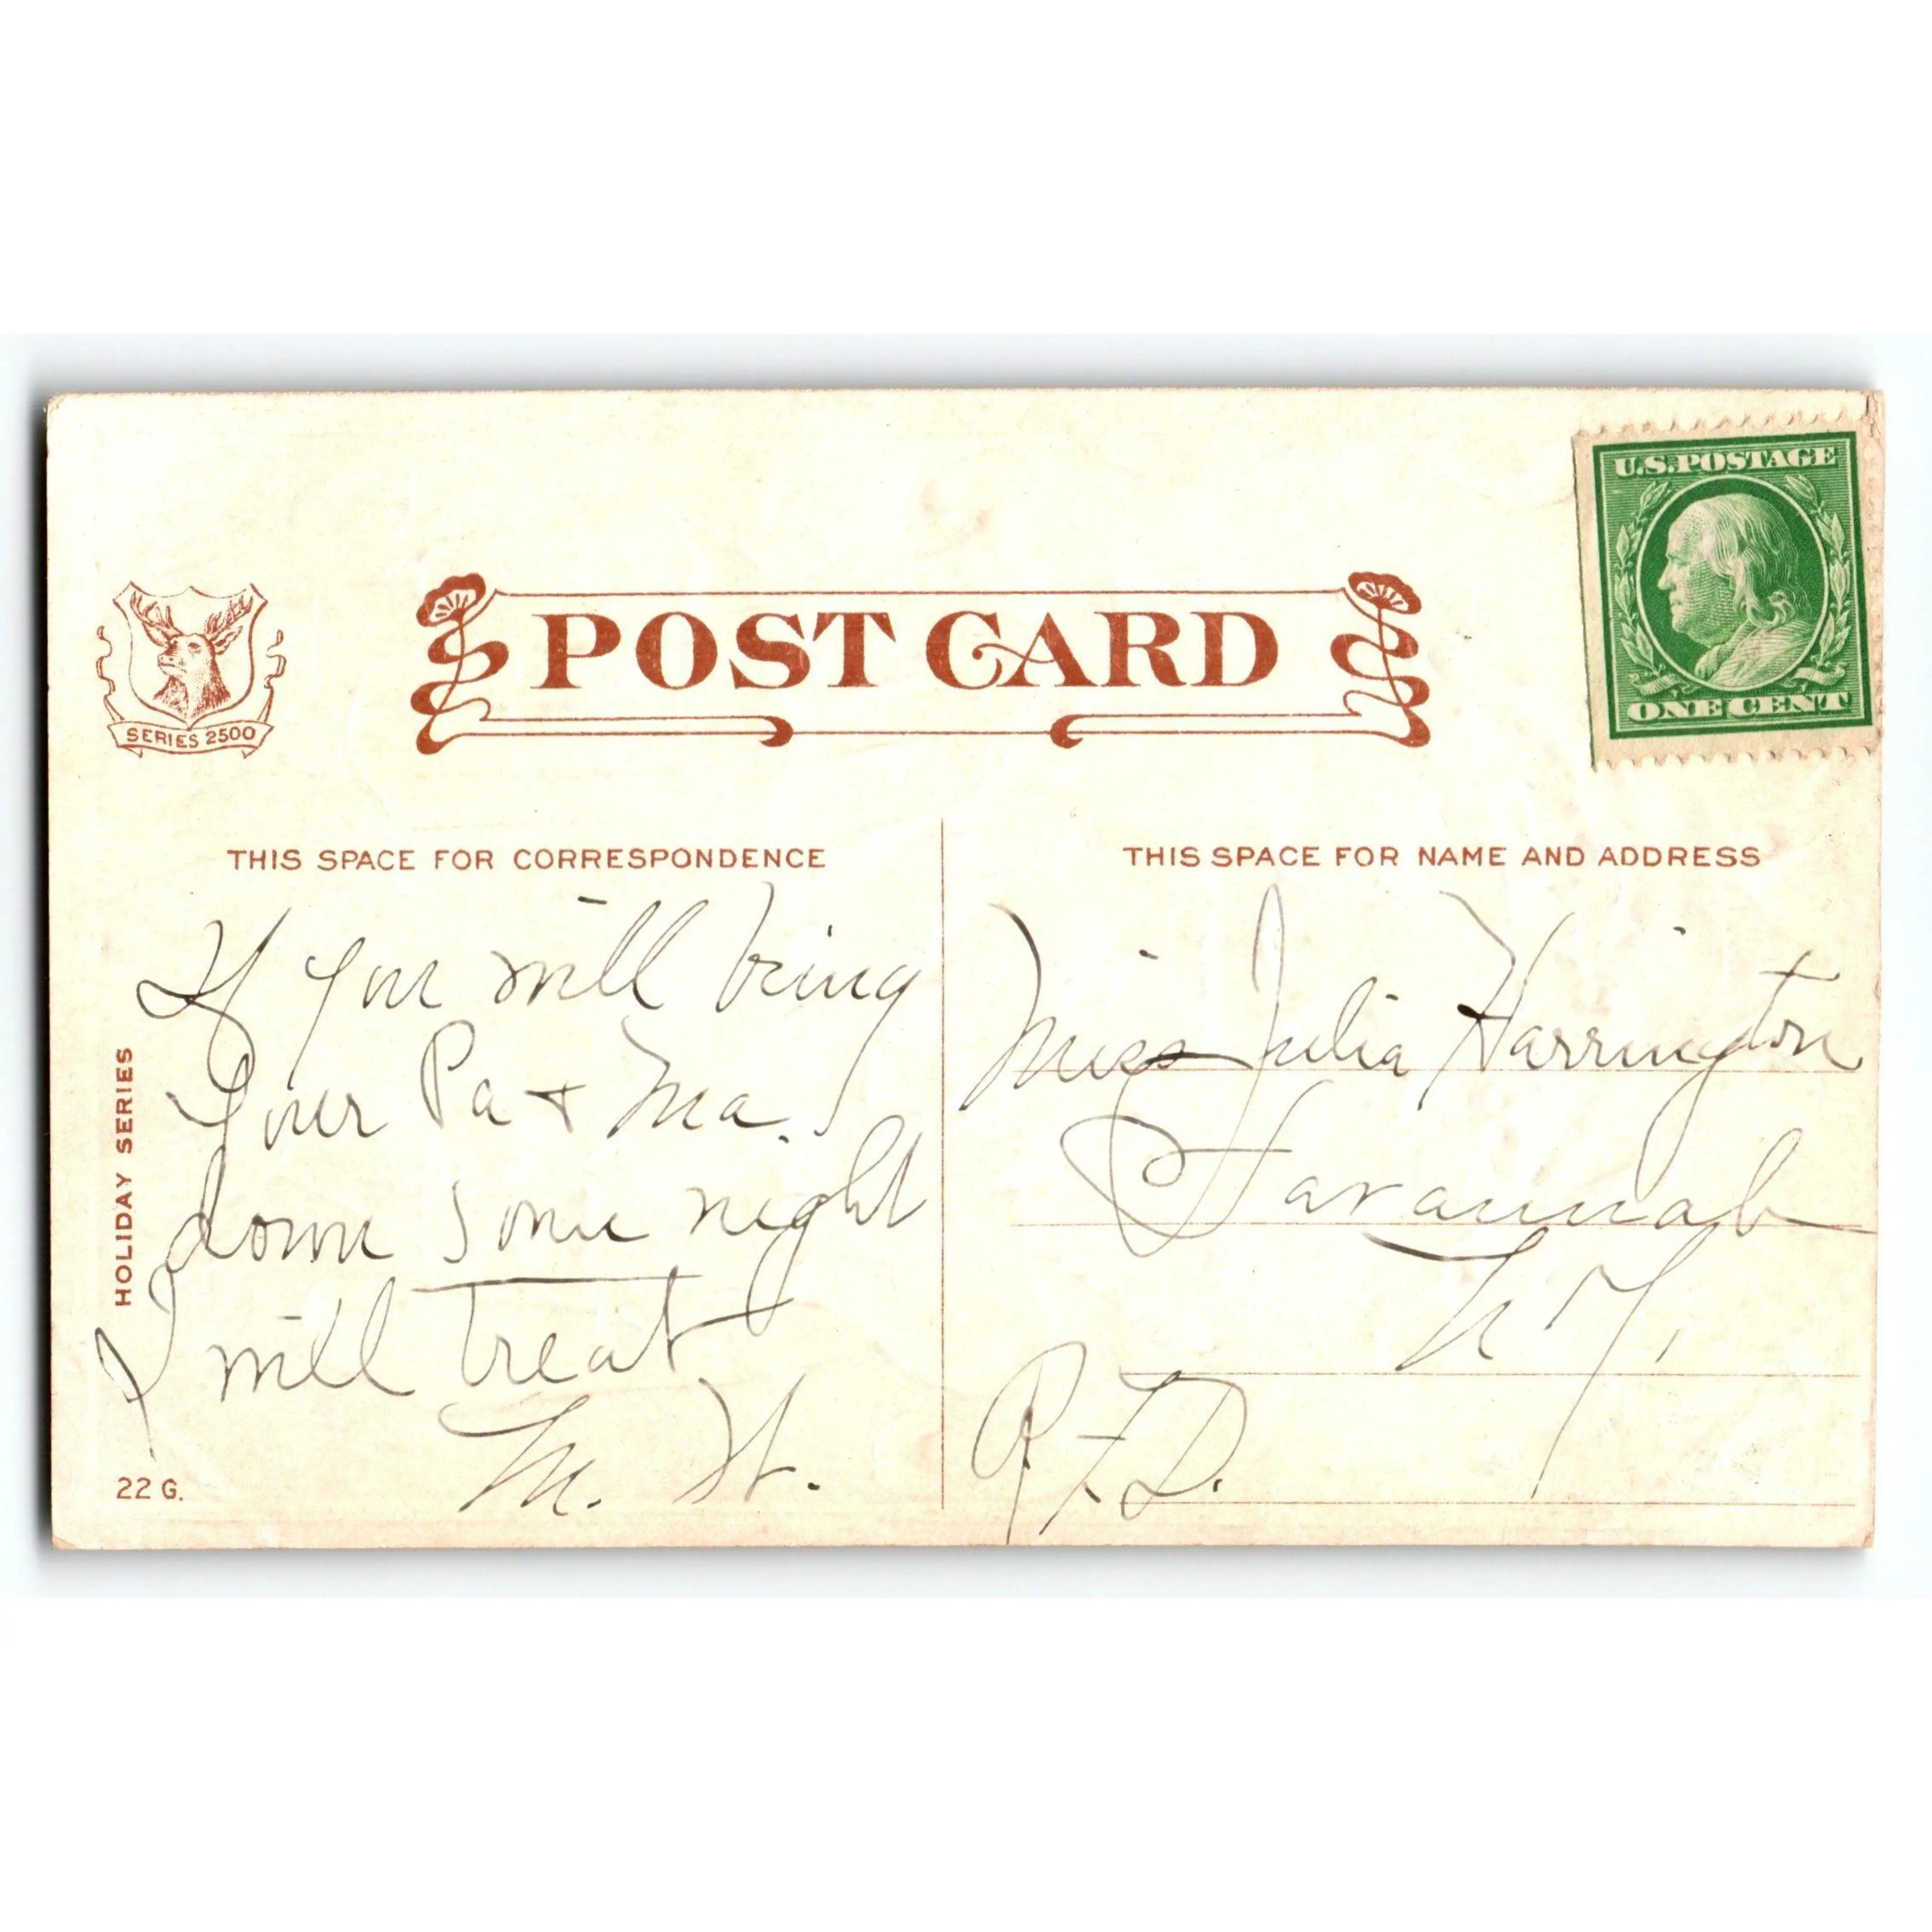 U.S.POSTAGE
ONE CENT
POST CARD
SERIES 2500
THIS SPACE FOR CORRESPONDENCE
If you will bring
your Pa + Ma.
down some night
I will treat
M. H.
HOLIDAY SERIES
22 G.
THIS SPACE FOR NAME AND ADDRESS
Miss Julia Harrington
Savannah
N Y,
R F D.